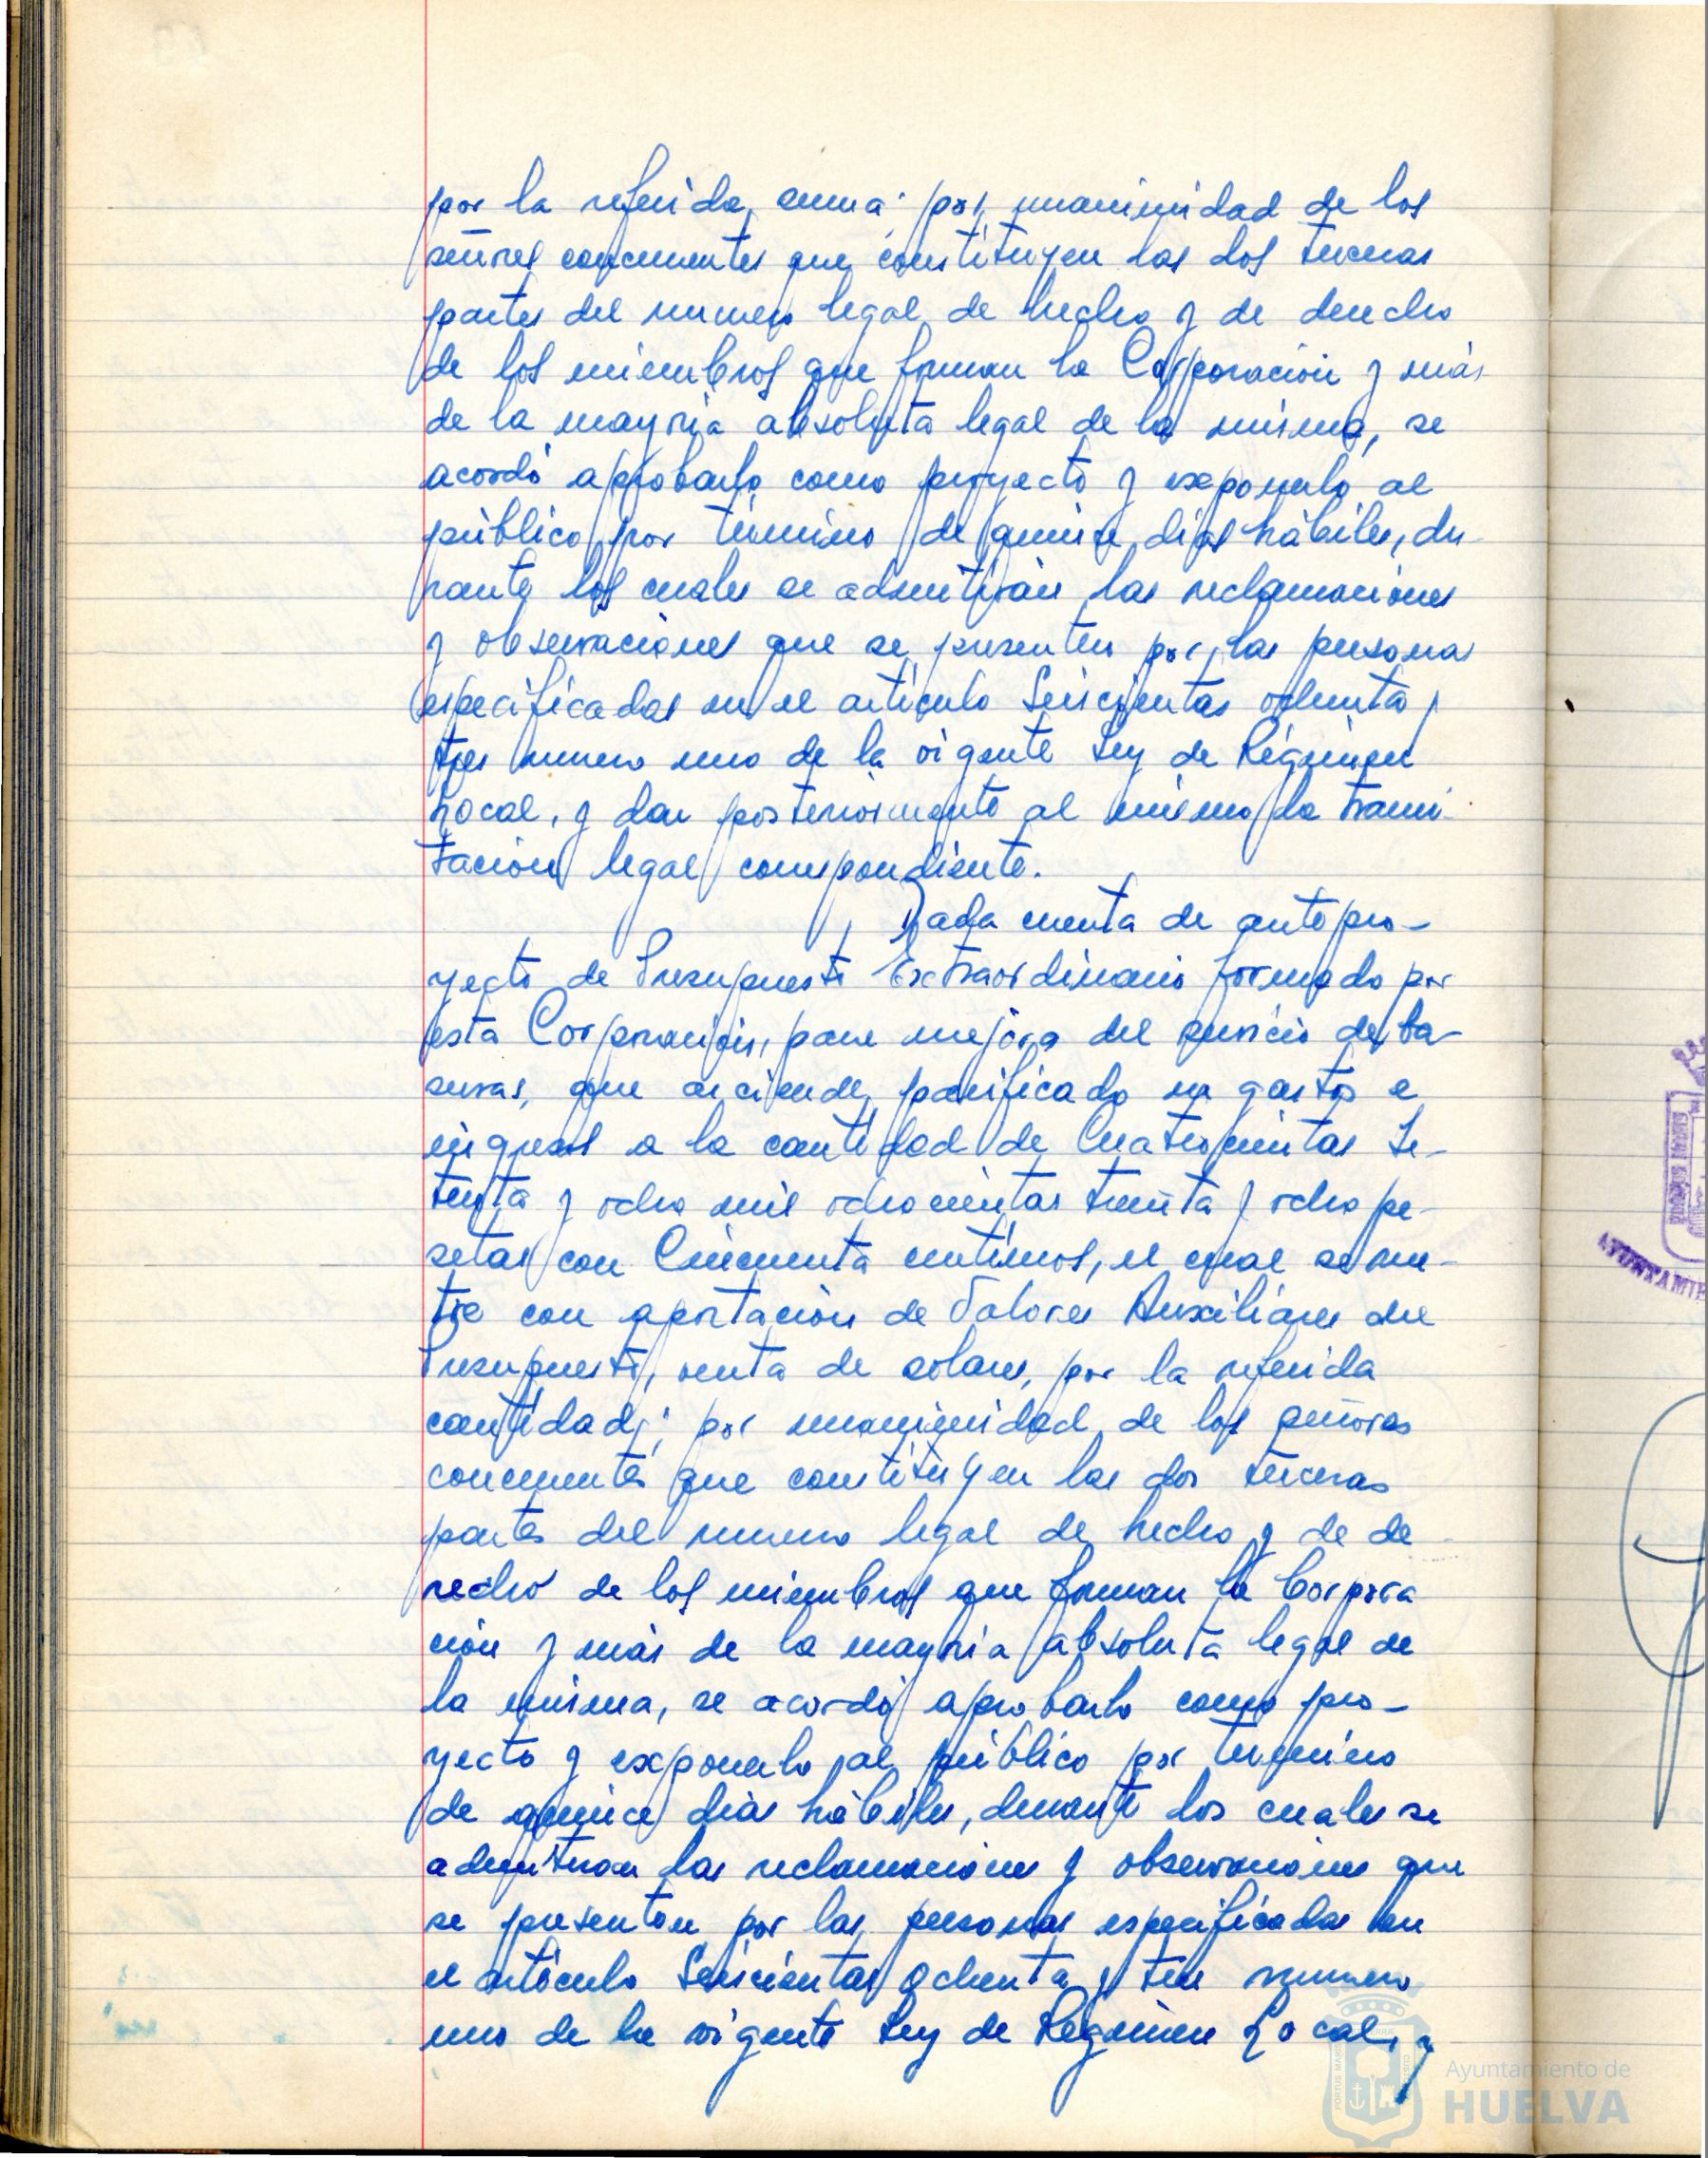 por la referida suma; por unanimidad de los
señores concurrentes que constituyen las dos terceras
partes del numero legal de hecho y de derecho
de los miembros que forman la Corporación y más
de la mayoria absoluta legal de la misma, se
acordó aprobarlo como proyecto y exponerlo al
público por término de quince dias hábiles, du-
rante los cuales se admitirán las reclamaciones
y observaciones que se presenten por las personas
especificadas en el artículo Seiscientas ochenta y
tres numero uno de la vigente Ley de Régimen
Local, y dar posteriormente al mismo la trami-
tación legal correspondiente.
Dada cuenta de antepro-
yecto de Presupuesto Extraordinario formado por
esta Corporación, para mejora del servicio de ba-
suras, que asciende, parificado en gastos e
ingresos a la cantidad de Cuatrocientas Se-
tenta y ocho mil ochocientas treinta y ocho pe-
setas con Cincuenta centimos, el cual se nu-
tre con aportación de Valores Auxiliares del
Presupuesto, venta de solares, por la referida
cantidad; por unanimidad de los señores
concurrentes que constituyen las dos terceras
partes del numero legal de hecho y de de-
recho de los miembros que forman la Corpora
ción y más de la mayoria absoluta legal de
la misma, se acordó aprobarlo como pro-
yecto y exponerlo al público por termino
de quince dias hábiles, durante los cuales se
admitiran las reclamaciones y observaciones que
se presenten por las personas especificadas en
el artículo Seiscientas ochenta y tres numero
uno de la vigente Ley de Régimen Local, y
Ayuntamiento de
HUELVA